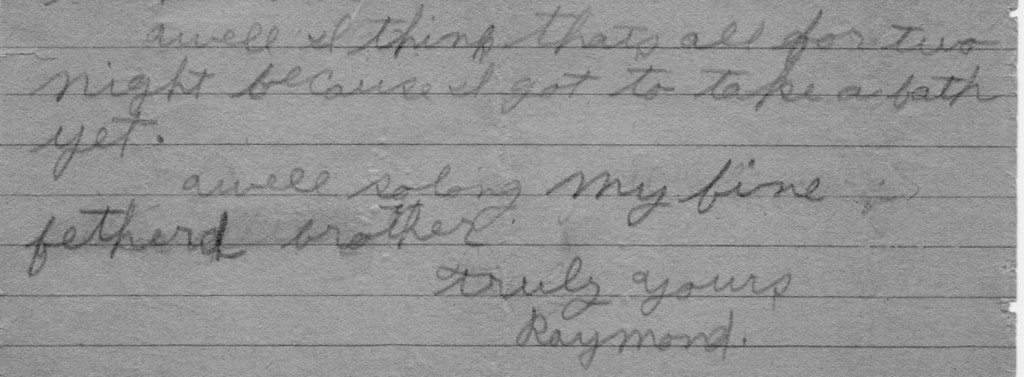 awell I think thats all for two
night because I got to take a bath
yet.
awell solong my fine
fetherd brother.
truly yours
Raymond.